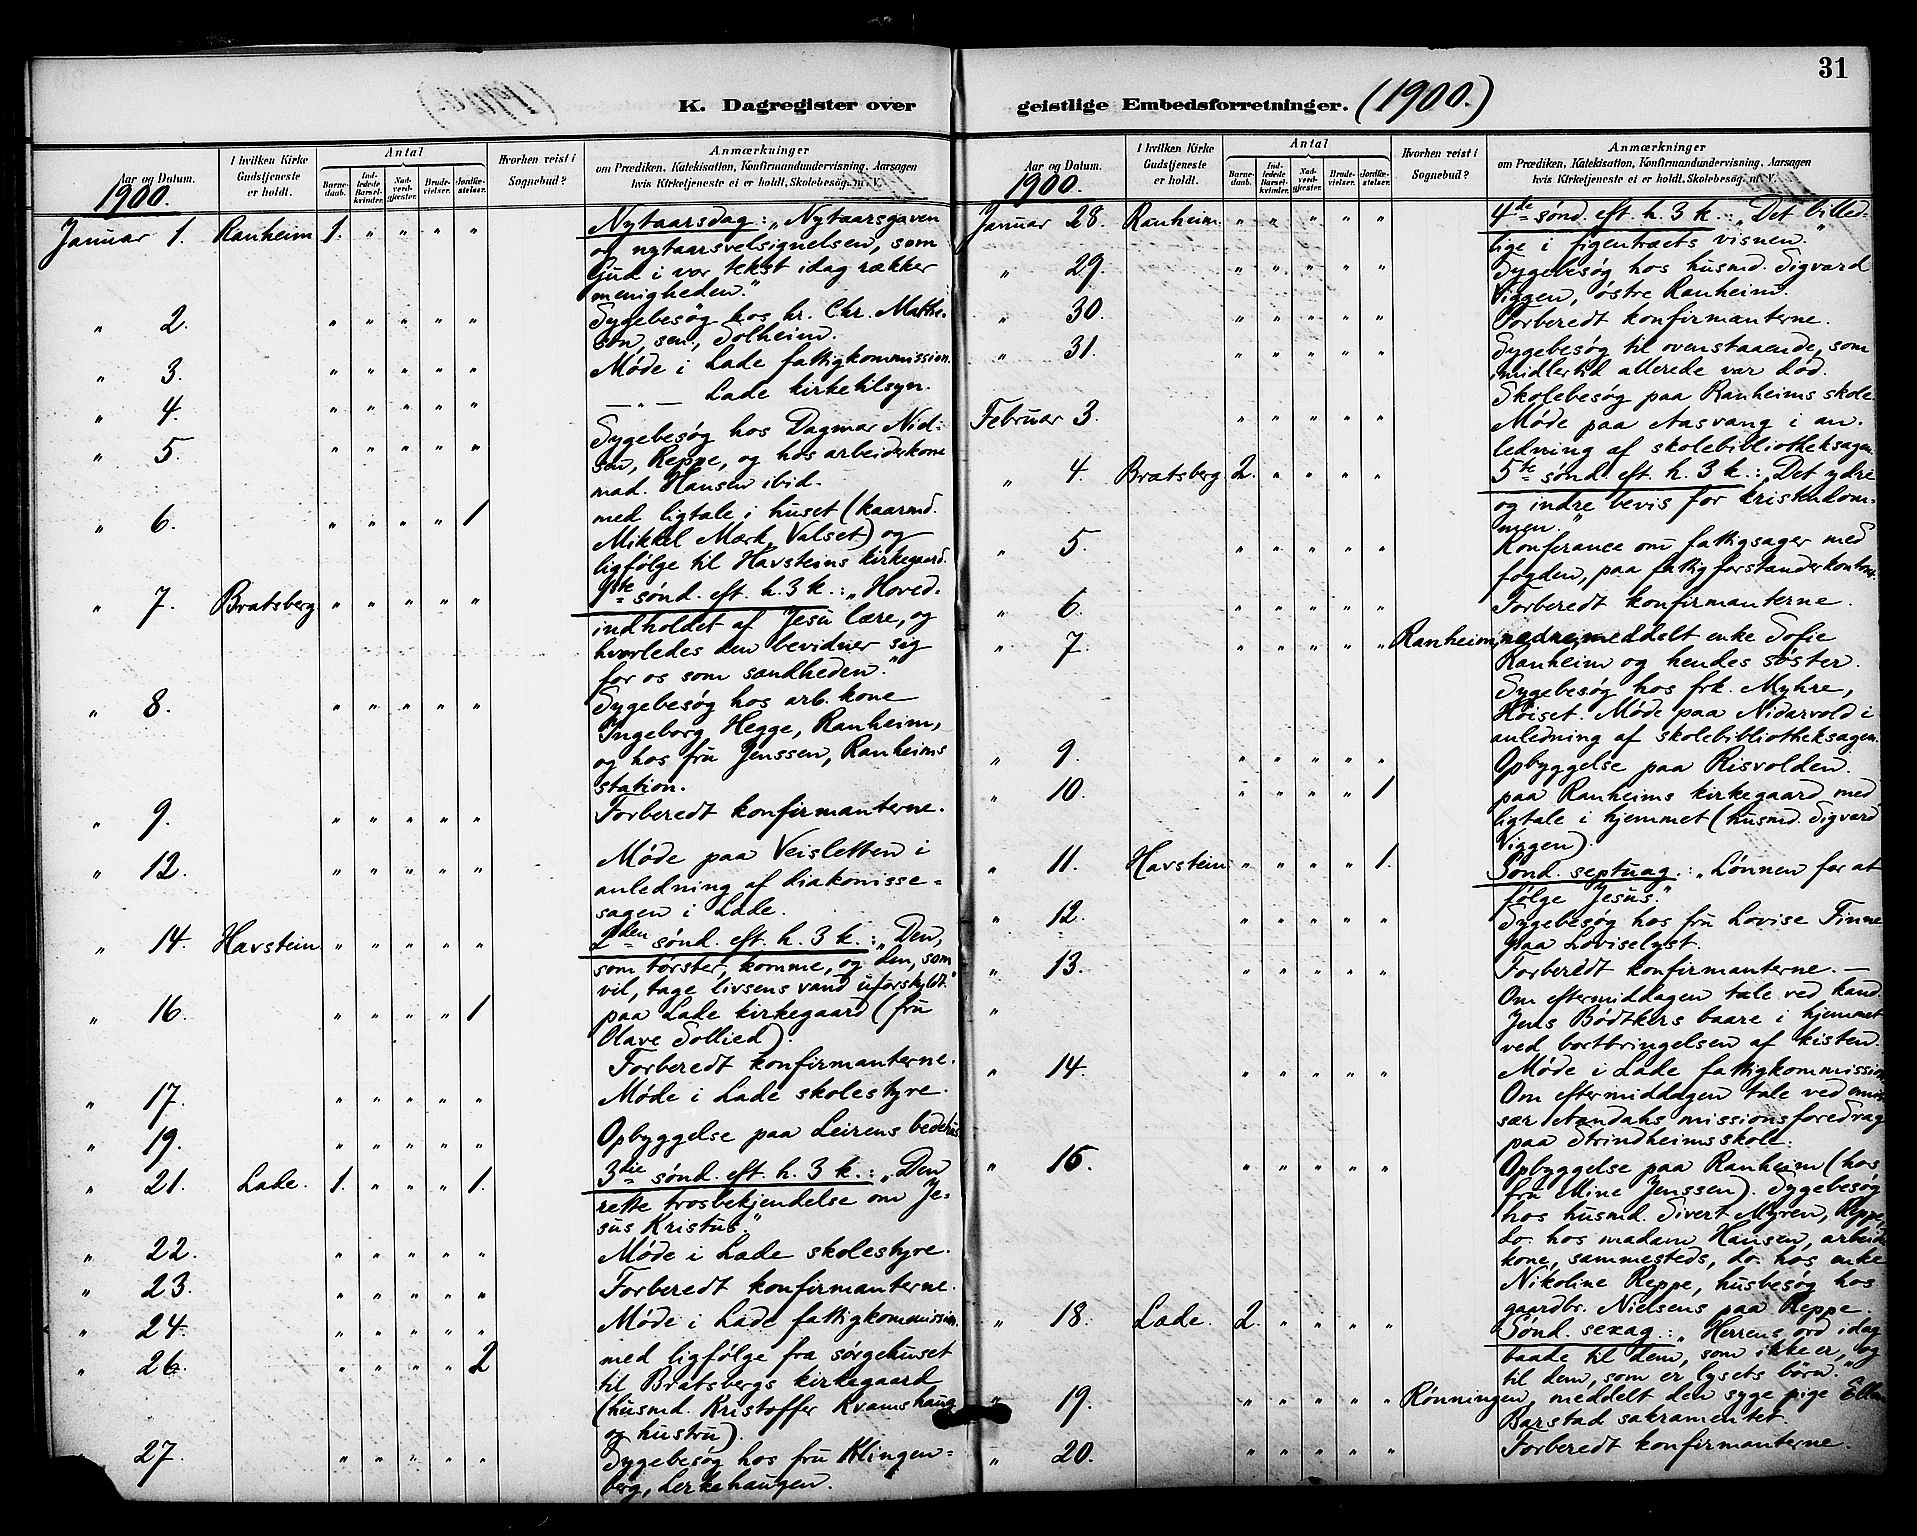 31
K. Dagregister over
geistlige Embedsforretninger. (1900.)
Aar og Datum.
1900.
I hvilken Kirke Gudstjeneste er holdt.
Antal
Barnedaab.
Indledede Barselkvinder.
Nadverdgjester.
Brudevielser.
Jordfæstelser.
Hvorhen reist i Sognebud?
Anmærkninger
om Prædiken, Katekisation, Konfirmandundervisning, Aarsagen
hvis Kirketjeneste ei er holdt, Skolebesøg, m. V.
Januar 1. Ranheim 1. " " " " Nytaarsdag: „Nytaarsgaven
og nytaarsvelsignelsen, som
Gud i vor tekst idag rækker
menigheden."
" 2. " " " " " Sygebesøg hos hr. Chr. Matthe-
son, sen., Solheim.
" 3. " " " " " Møde i Lade fattigkommission.
" 4. " " " " " — " — Lade kirketilsyn.
" 5. " " " " " Sygebesøg hos Dagmar Nid-
sen, Reppe, og hos arbeiderkone
mad. Hansen ibid.
" 6. " " " " 1 med ligtale i huset (kaarmd.
Mikkel Mærk, Valset) og
ligfølge til Havsteins kirkegaard.
" 7. Bratsberg " " " " " 1ste sønd. eft. h. 3 k.: „Hoved-
indholdet af Jesu lære, og
hvorledes den bevidner sig
for os som sandheden."
" 8. " " " " " Sygebesøg hos arb. kone
Ingeborg Hegge, Ranheim,
og hos fru Jenssen, Ranheims
station.
" 9. " " " " " Forberedt konfirmanterne.
" 12. " " " " " Møde paa Veisletten i
anledning af diakonisse-
sagen i Lade.
" 14. Havstein " " " " " 2den sønd. eft. h. 3 k.: „Den,
som tørster, komme, og den, som
vil, tage livsens vand uforskyldt."
" 16. " " " " 1 paa Lade kirkegaard (fru
Olave Sollied).
Forberedt konfirmanterne.
" 17. " " " " " Møde i Lade skolestyre.
" 19. " " " " " Opbyggelse paa Leirens bedehus
" 21. Lade. 1. " " " 1. 3die sønd. eft. h. 3 k.: „Den
rette trosbekjendelse om Je-
sus Kristus."
" 22. " " " " " Møde i Lade skolestyre.
" 23. " " " " " Forberedt konfirmanterne.
" 24. " " " " " Møde i Lade fattigkommission.
" 26. " " " " 2 med ligfølge fra sørgehuset
til Bratsbergs kirkegaard
(husmd. Kristoffer Kvamshaug
og hustru).
27. " " " " " Sygebesøg hos fru Klingen-
berg, Lerkehaugen.
Aar og Datum.
1900.
I hvilken Kirke Gudstjeneste er holdt.
Antal
Barnedaab.
Indledede Barselkvinder.
Nadverdgjester.
Brudevielser.
Jordfæstelser.
Hvorhen reist i Sognebud?
Anmærkninger
om Prædiken, Katekisation, Konfirmandundervisning, Aarsagen
hvis Kirketjeneste ei er holdt, Skolebesøg, m. V.
Januar 28. Ranheim. " " " " " 4de sønd. eft. h. 3 k.: „Det billed-
lige i figentræets visnen."
" 29. " " " " " Sygebesøg hos husmd. Sigvard
Viggen, østre Ranheim.
" 30. " " " " " Forberedt konfirmanterne.
" 31. " " " " " Sygebesøg til ovenstaaende, som
imidlertid allerede var død.
Skolebesøg paa Ranheims skole.
Februar 3. " " " " " Møde paa Aasvang i an-
ledning af skolebibliotheksagen.
" 4. Bratsberg 2. " " " " 5te sønd. eft. h. 3 k.: „Det ydre
og indre bevis for kristendom-
men."
" 5. " " " " " Konferance om fattigsager med
fogden, paa fattigforstanderkontoret.
" 6. " " " " " Forberedt konfirmanterne.
" 7. " " " " " Ranheim, nedre, meddelt enke Sofie
Ranheim og hendes søster.
Sygebesøg hos frk. Myhre,
Høiset. Møde paa Nidarvold i
anledning af skolebibliotheksagen.
" 9. " " " " " Opbyggelse paa Risvolden.
" 10. " " " " 1 paa Ranheims kirkegaard med
ligtale i hjemmet (husmd. Sigvard
Viggen).
" 11. Havstein " " " " 1. Sønd. septuag.: „Lønnen for at
følge Jesus."
" 12. " " " " " Sygebesøg hos fru Lovise Finne
paa Loviselyst.
" 13. " " " " " Forberedt konfirmanterne. —
" Om eftermiddagen tale ved kand.
Jens Bødtkers baare i hjemmet
ved bortbringelsen af kisten.
" 14. " " " " " Møde i Lade fattigkommission
Om eftermiddagen tale ved emis-
sær Aandahs missionsforedrag
paa Strindheims skole.
" 15. " " " " " Opbyggelse paa Ranheim (hos
fru Mine Jenssen). Sygebesøg
hos husmd. Sivert Myren, Reppe,
do. hos madam Hansen, arbeider-
kone, sammesteds, do. hos enke
Nikoline Reppe, husbesøg hos
gaardbr. Nielsens paa Reppe.
" 18. Lade. 2. " " " " Sønd. sexag.: „Herrens ord idag
baade til dem, som ikke er, og
til dem, som er lysets børn."
" 19. " " " " " Rønningen, meddelt den syge pige Ellen
Barstad sakramentet.
" 20. " " " " " Forberedt konfirmanterne.